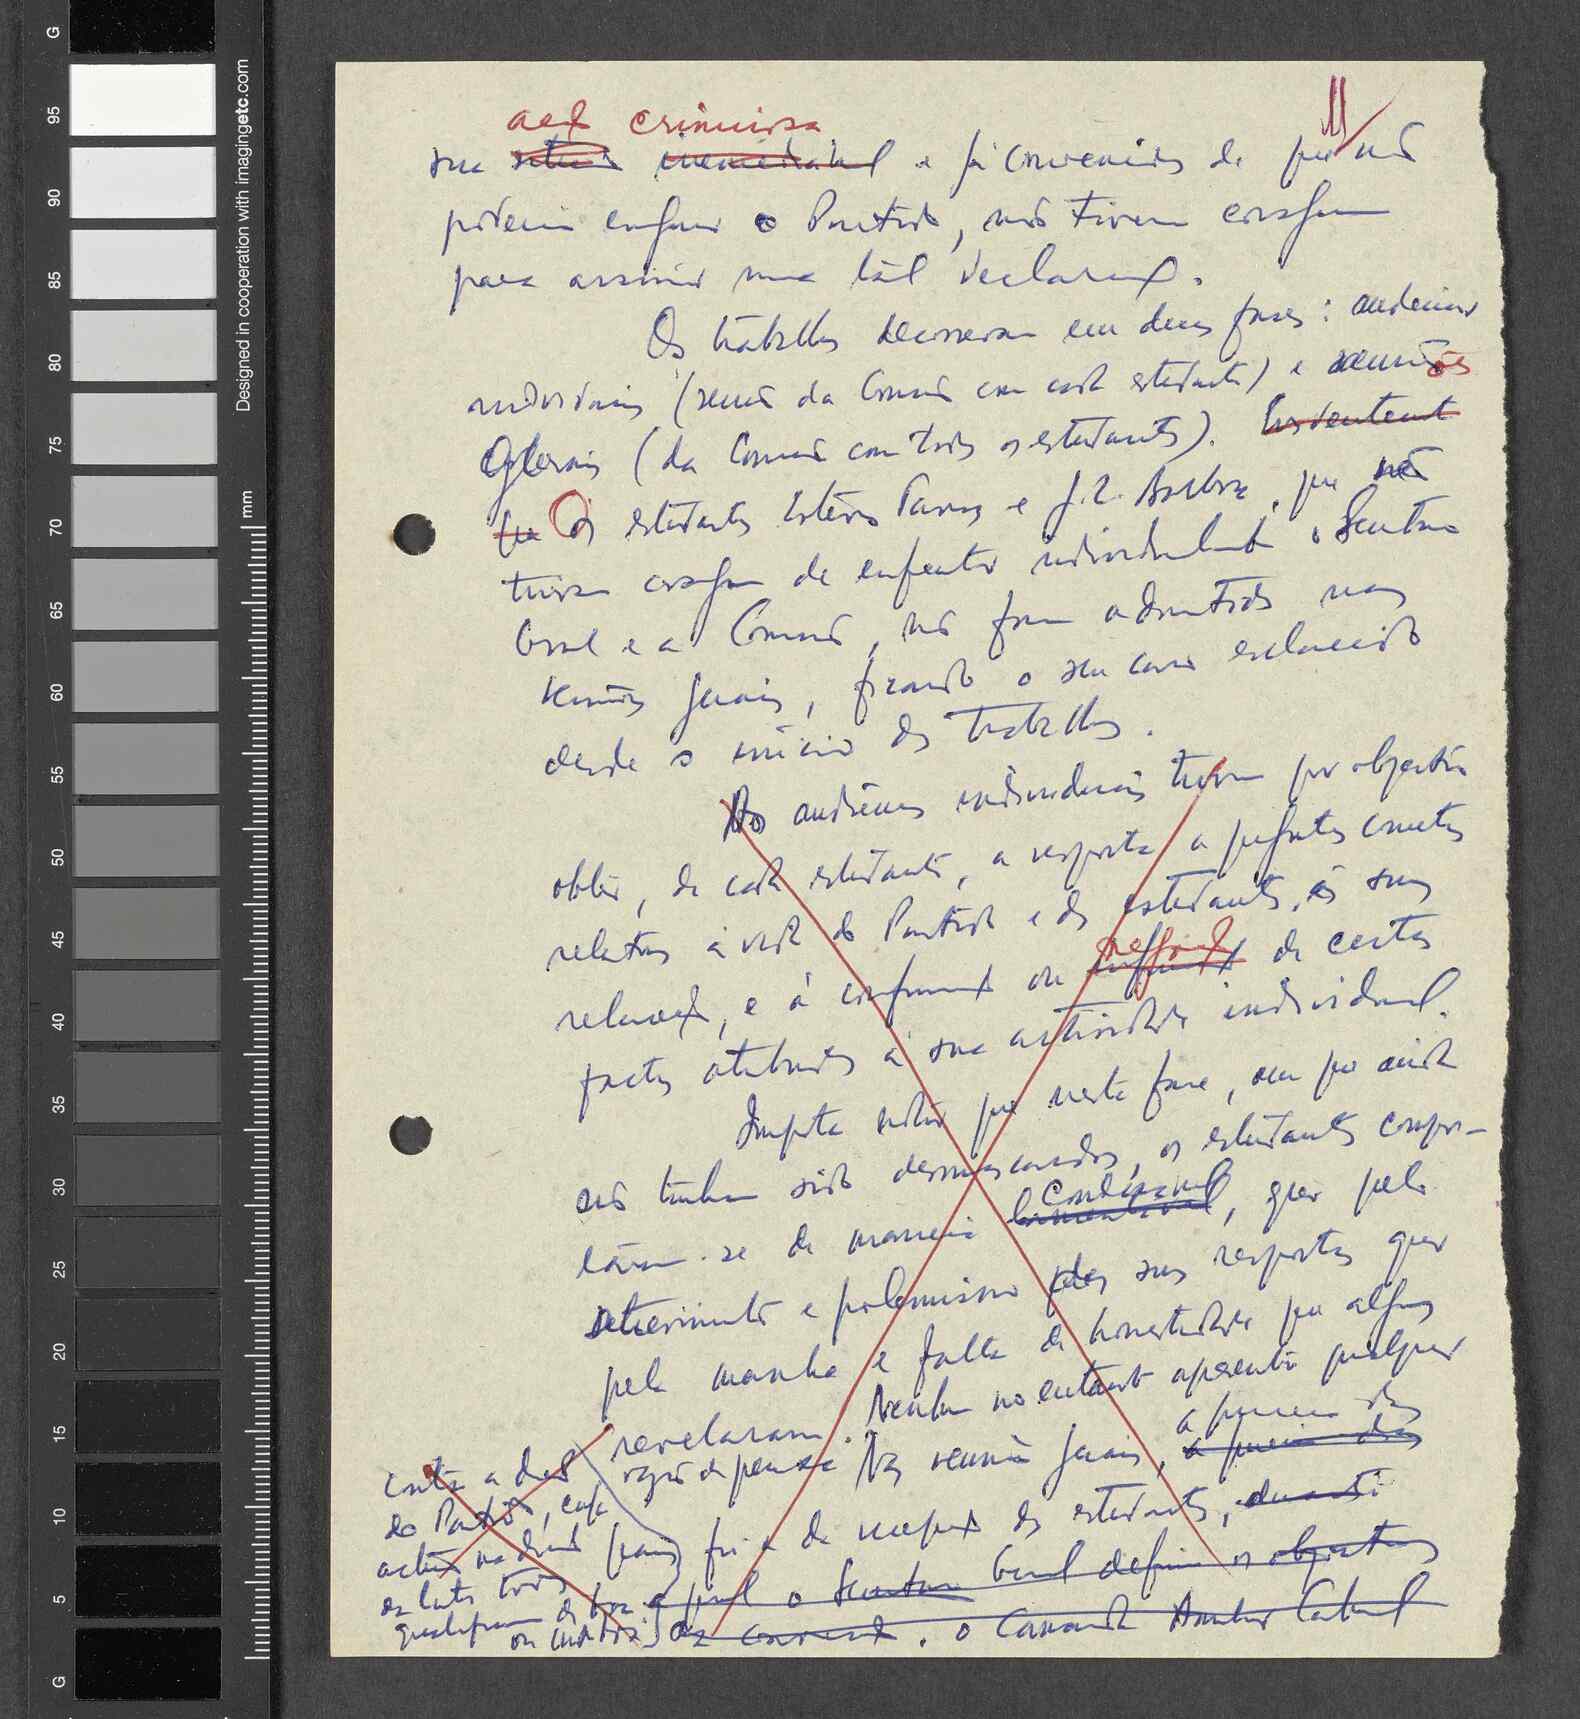 G
95
90
85
80
75
70
65
60
55
50
45
40
35
30
25
20
15
10
5
G
Designed in cooperation with imagingetc.com
mm
acç criminosa
sua e já convencidos de que não
podem enganar o Partido, não tiveram coragem
para assinar uma tal declaraç.
Os trabalhos decorreram em duas fases: audiências
individuais (reunião da Comissão com cada estudante) e reuniões
gerais (da Comissão com todos os estudantes).
Os estudantes Estêvão Tavares e J. Barbosa, que não
tiveram coragem de enfrentar individualmente o Secretário
Geral e a Comissão, não foram admitidos nas
reuniões gerais, ficando o seu caso esclarecido
desde o início dos trabalhos.
As audiências individuais tiveram por objectivo
obter, de cada estudante, a resposta a perguntas concretas
relativas à vida do Partido e dos estudantes, às suas
relações, e à confirmação ou de certos
factos atribuídos à sua actividade individual.
Importa notar que nesta fase, em que ainda
não tinham sido desmascarados, os estudantes compor-
taram-se de maneira condenável, quer pelo
e polemismo das suas respostas quer
pela manha e falta de honestidade que alguns
revelaram. Nenhum no entanto apresentou qualquer
razão de peso Nas reuniões gerais, a primeira das
contra a do Partido, cuja
foi a de dos estudantes, durante
o Secretário Geral definiu os objectivos
da . o Camarada Amílcar Cabral